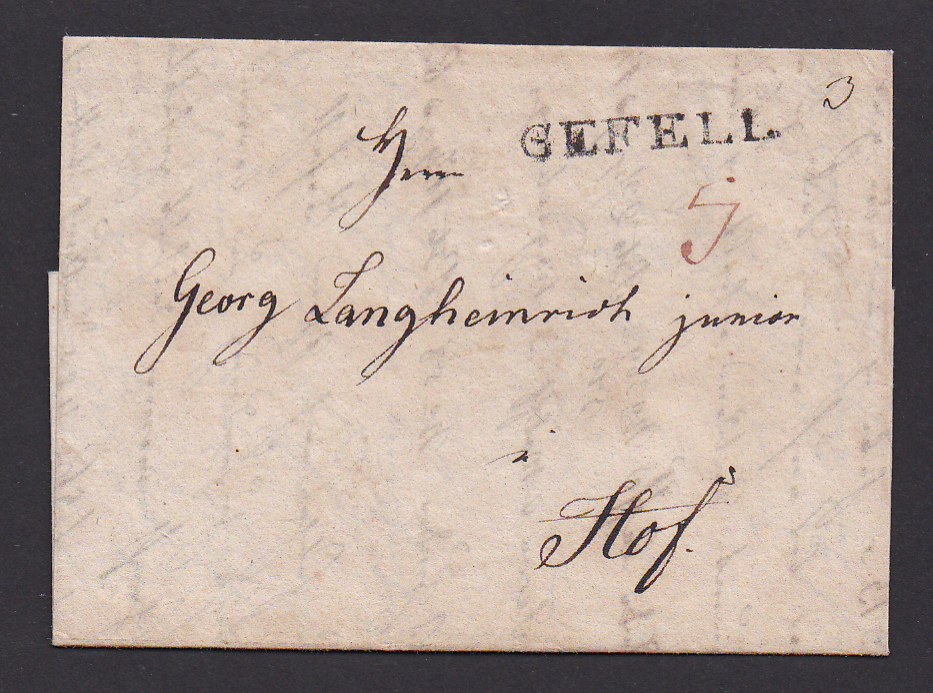 3
GEFELL.
Herrn
5
Georg Langheinrich junior
in
Hof.